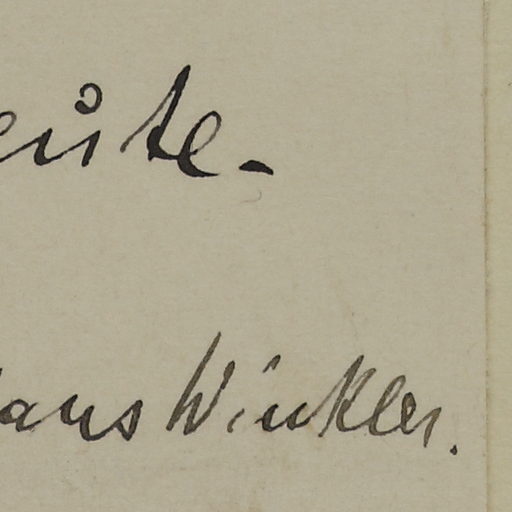 eute-
ans Winkler.